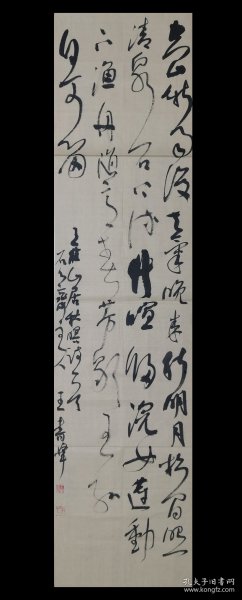 空山新雨後天氣晚來秋明月松間照
清泉石上流竹喧歸浣女蓮動
下漁舟隨意春芳歇王孫
自可留
王維山居秋暝詩一首
齋主人 王
孔夫子旧书网